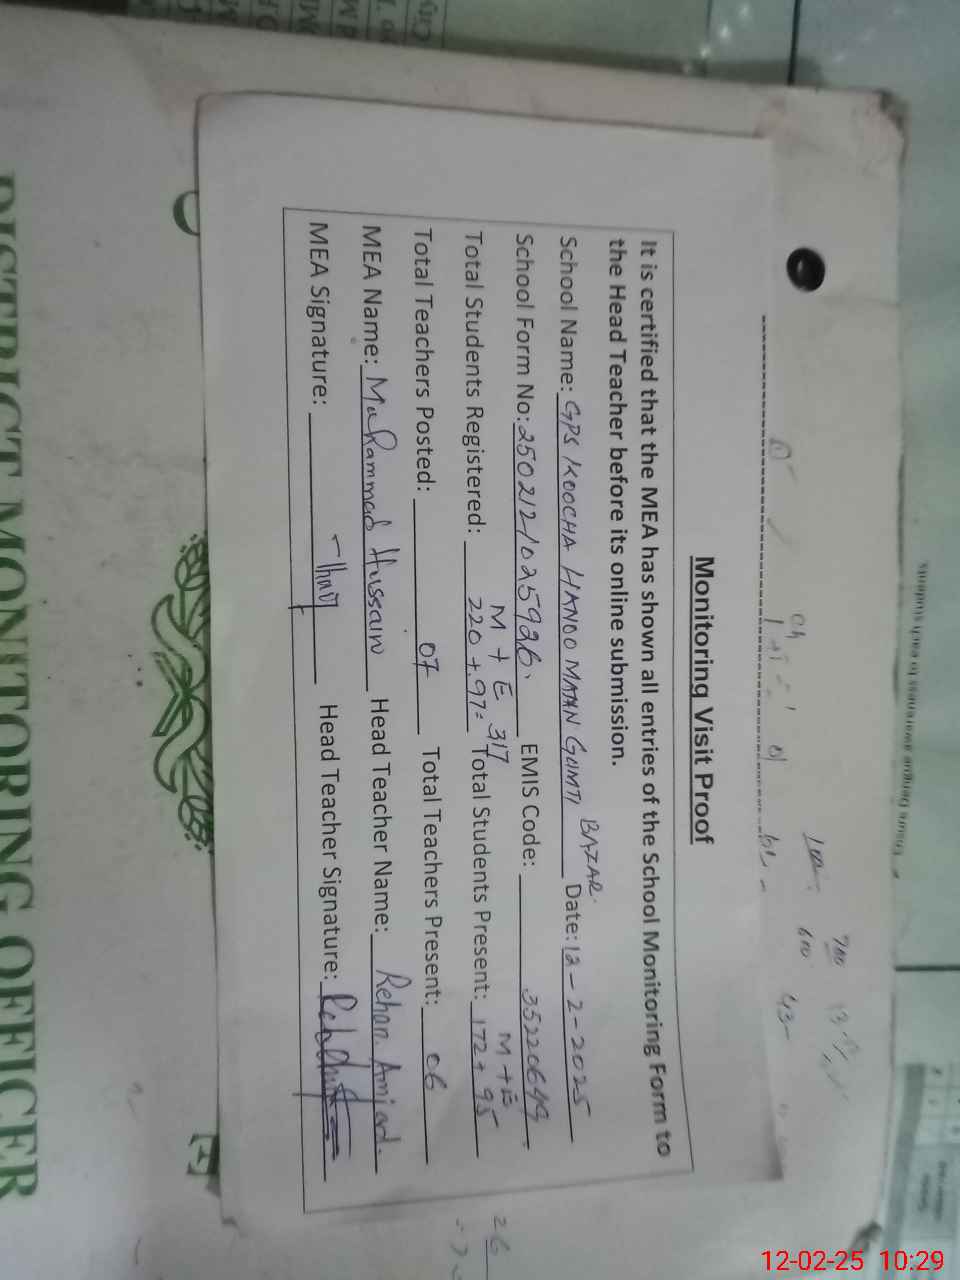 Monitoring Visit Proof
It is certified that the MEA has shown all entries of the School Monitoring Form to
the Head Teacher before its online submission.
School Name: GPS KOOCHA HANOO MAAN GUMTI BAZAR Date: 12-2-2025
School Form No: 250212/025926. EMIS Code: 35220649
M + E M + E
Total Students Registered: 220 + 97 = 317 Total Students Present: 172 + 95
Total Teachers Posted: 07 Total Teachers Present: 06
MEA Name: Muhammad Hussain Head Teacher Name: Rehan Amjad.
MEA Signature: Head Teacher Signature:
DISTRICT MONITORING OFFICER
700
600
26
12-02-25 10:29